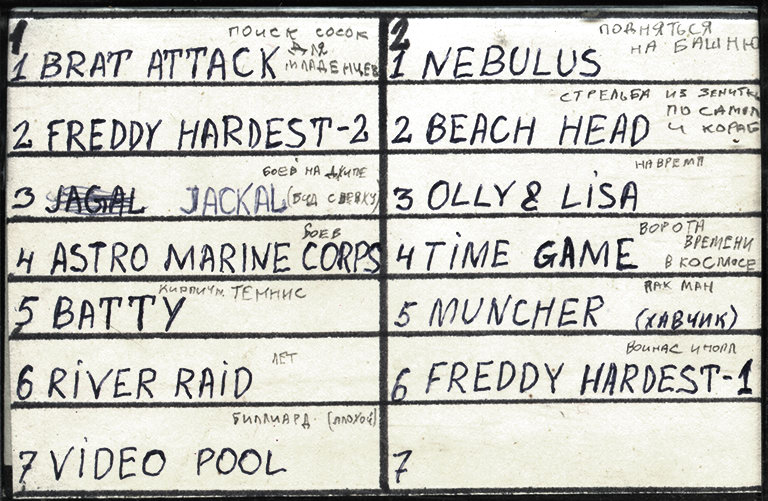 1
ПОИСК СОСОК
ДЛЯ
1 BRAT ATTACK МЛАДЕНЦЕВ
2 FREDDY HARDEST-2
БОЕВ НА ДЖИПЕ
3 JAGAL JACKAL (ВИД СВЕРХУ)
БОЕВ
4 ASTRO MARINE CORPS
КИРПИЧН. ТЕННИС
5 BATTY
ЛЕТ
6 RIVER RAID
БИЛЛИАРД (ПЛОХОЙ)
7 VIDEO POOL
2
ПОДНЯТЬСЯ
НА БАШНЮ
1 NEBULUS
СТРЕЛЬБА ИЗ ЗЕНИТК
ПО САМОЛ
2 BEACH HEAD И КОРАБ
НА ВРЕМЯ
3 OLLY & LISA
ВОРОТА
ВРЕМЕНИ
4 TIME GAME В КОСМОСЕ
ПАК МАН
5 MUNCHER (ХАВЧИК)
6 FREDDY HARDEST-1
7